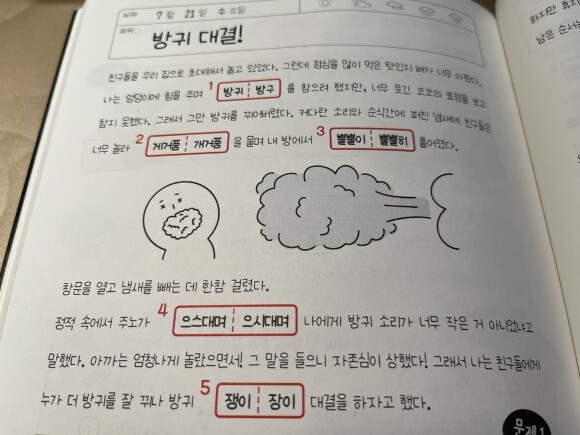 날짜: 7월 21일 수요일
제목: 방귀 대결!
친구들을 우리 집으로 초대해서 놀고 있었다. 그런데 점심을 많이 먹은 탓인지 배가 너무 아팠다.
나는 엉덩이에 힘을 주며 1 방귀 방구 를 참으려 했지만, 너무 웃긴 코코의 표정을 보고
참지 못했다. 그래서 그만 방귀를 뀌어버렸다. 커다란 소리와 순식간에 퍼진 냄새에 친구들은
너무 놀라 2 게거품 개거품 을 물며 내 방에서 3 뿔뿔이 뿔뿔히 흩어졌다.
창문을 열고 냄새를 빼는 데 한참 걸렸다.
정적 속에서 주노가 4 으스대며 으시대며 나에게 방귀 소리가 너무 작은 거 아니었냐고
말했다. 아까는 엄청나게 놀랐으면서! 그 말을 들으니 자존심이 상했다! 그래서 나는 친구들에게
누가 더 방귀를 잘 뀌나 방귀 5 쟁이 장이 대결을 하자고 했다.
문제 1
남은 순서는